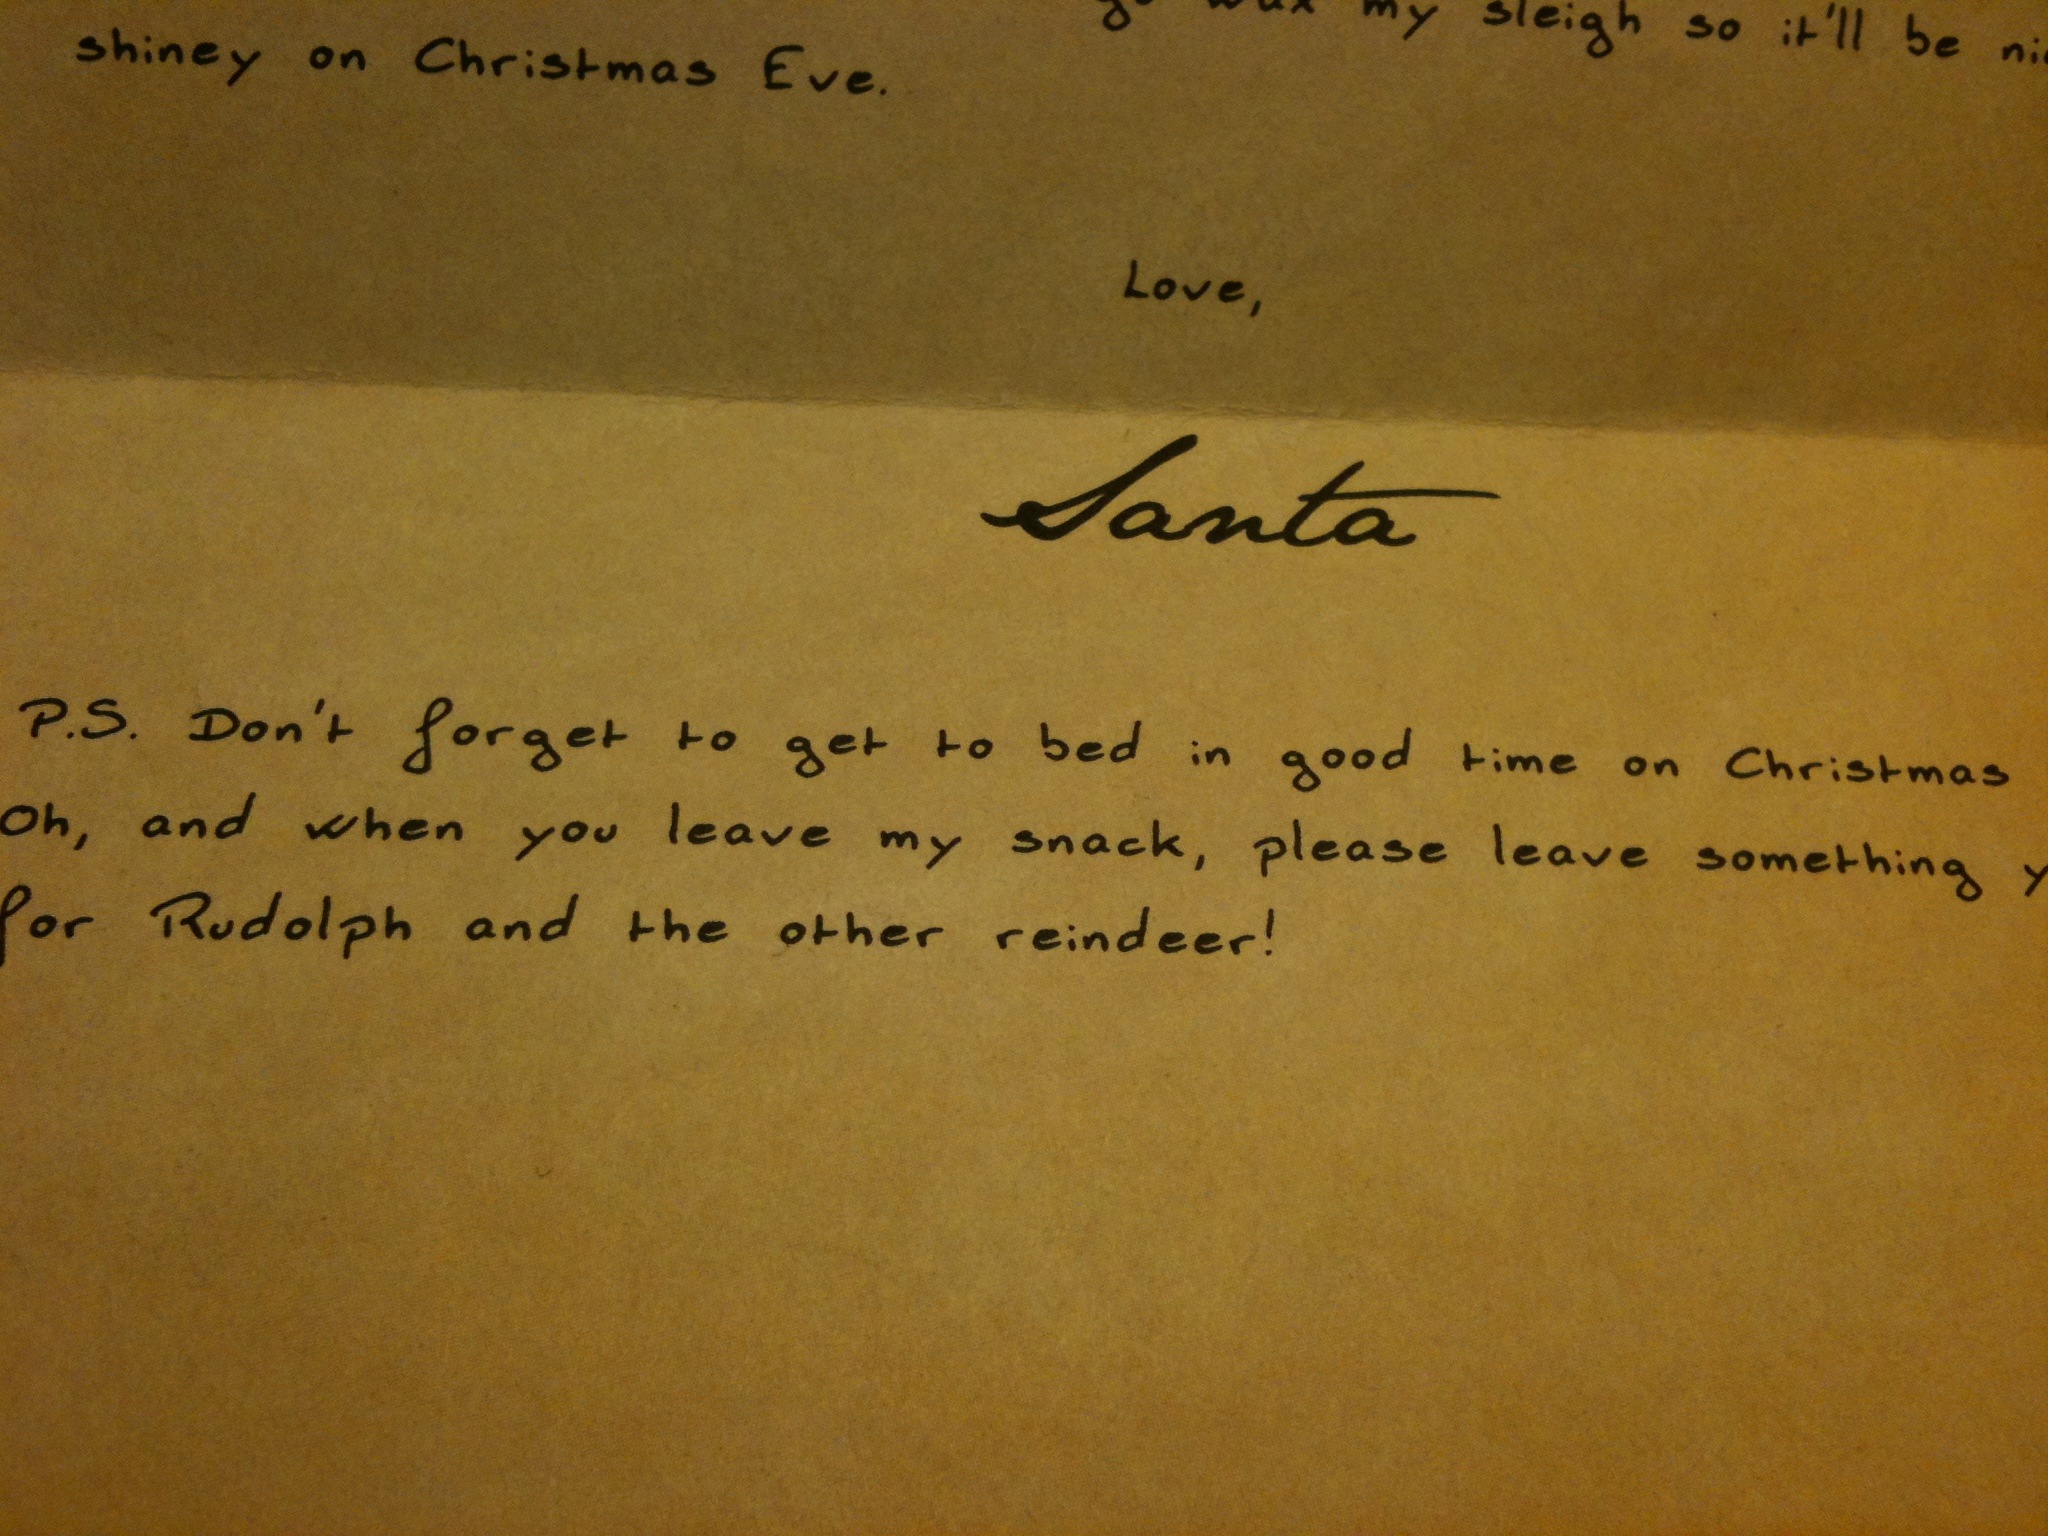 go wax my sleigh so it'll be
shiney on Christmas Eve.
Love,
Santa
P.S. Don't forget to get to bed in good time on Christmas
Oh, and when you leave my snack, please leave something
for Rudolph and the other reindeer!